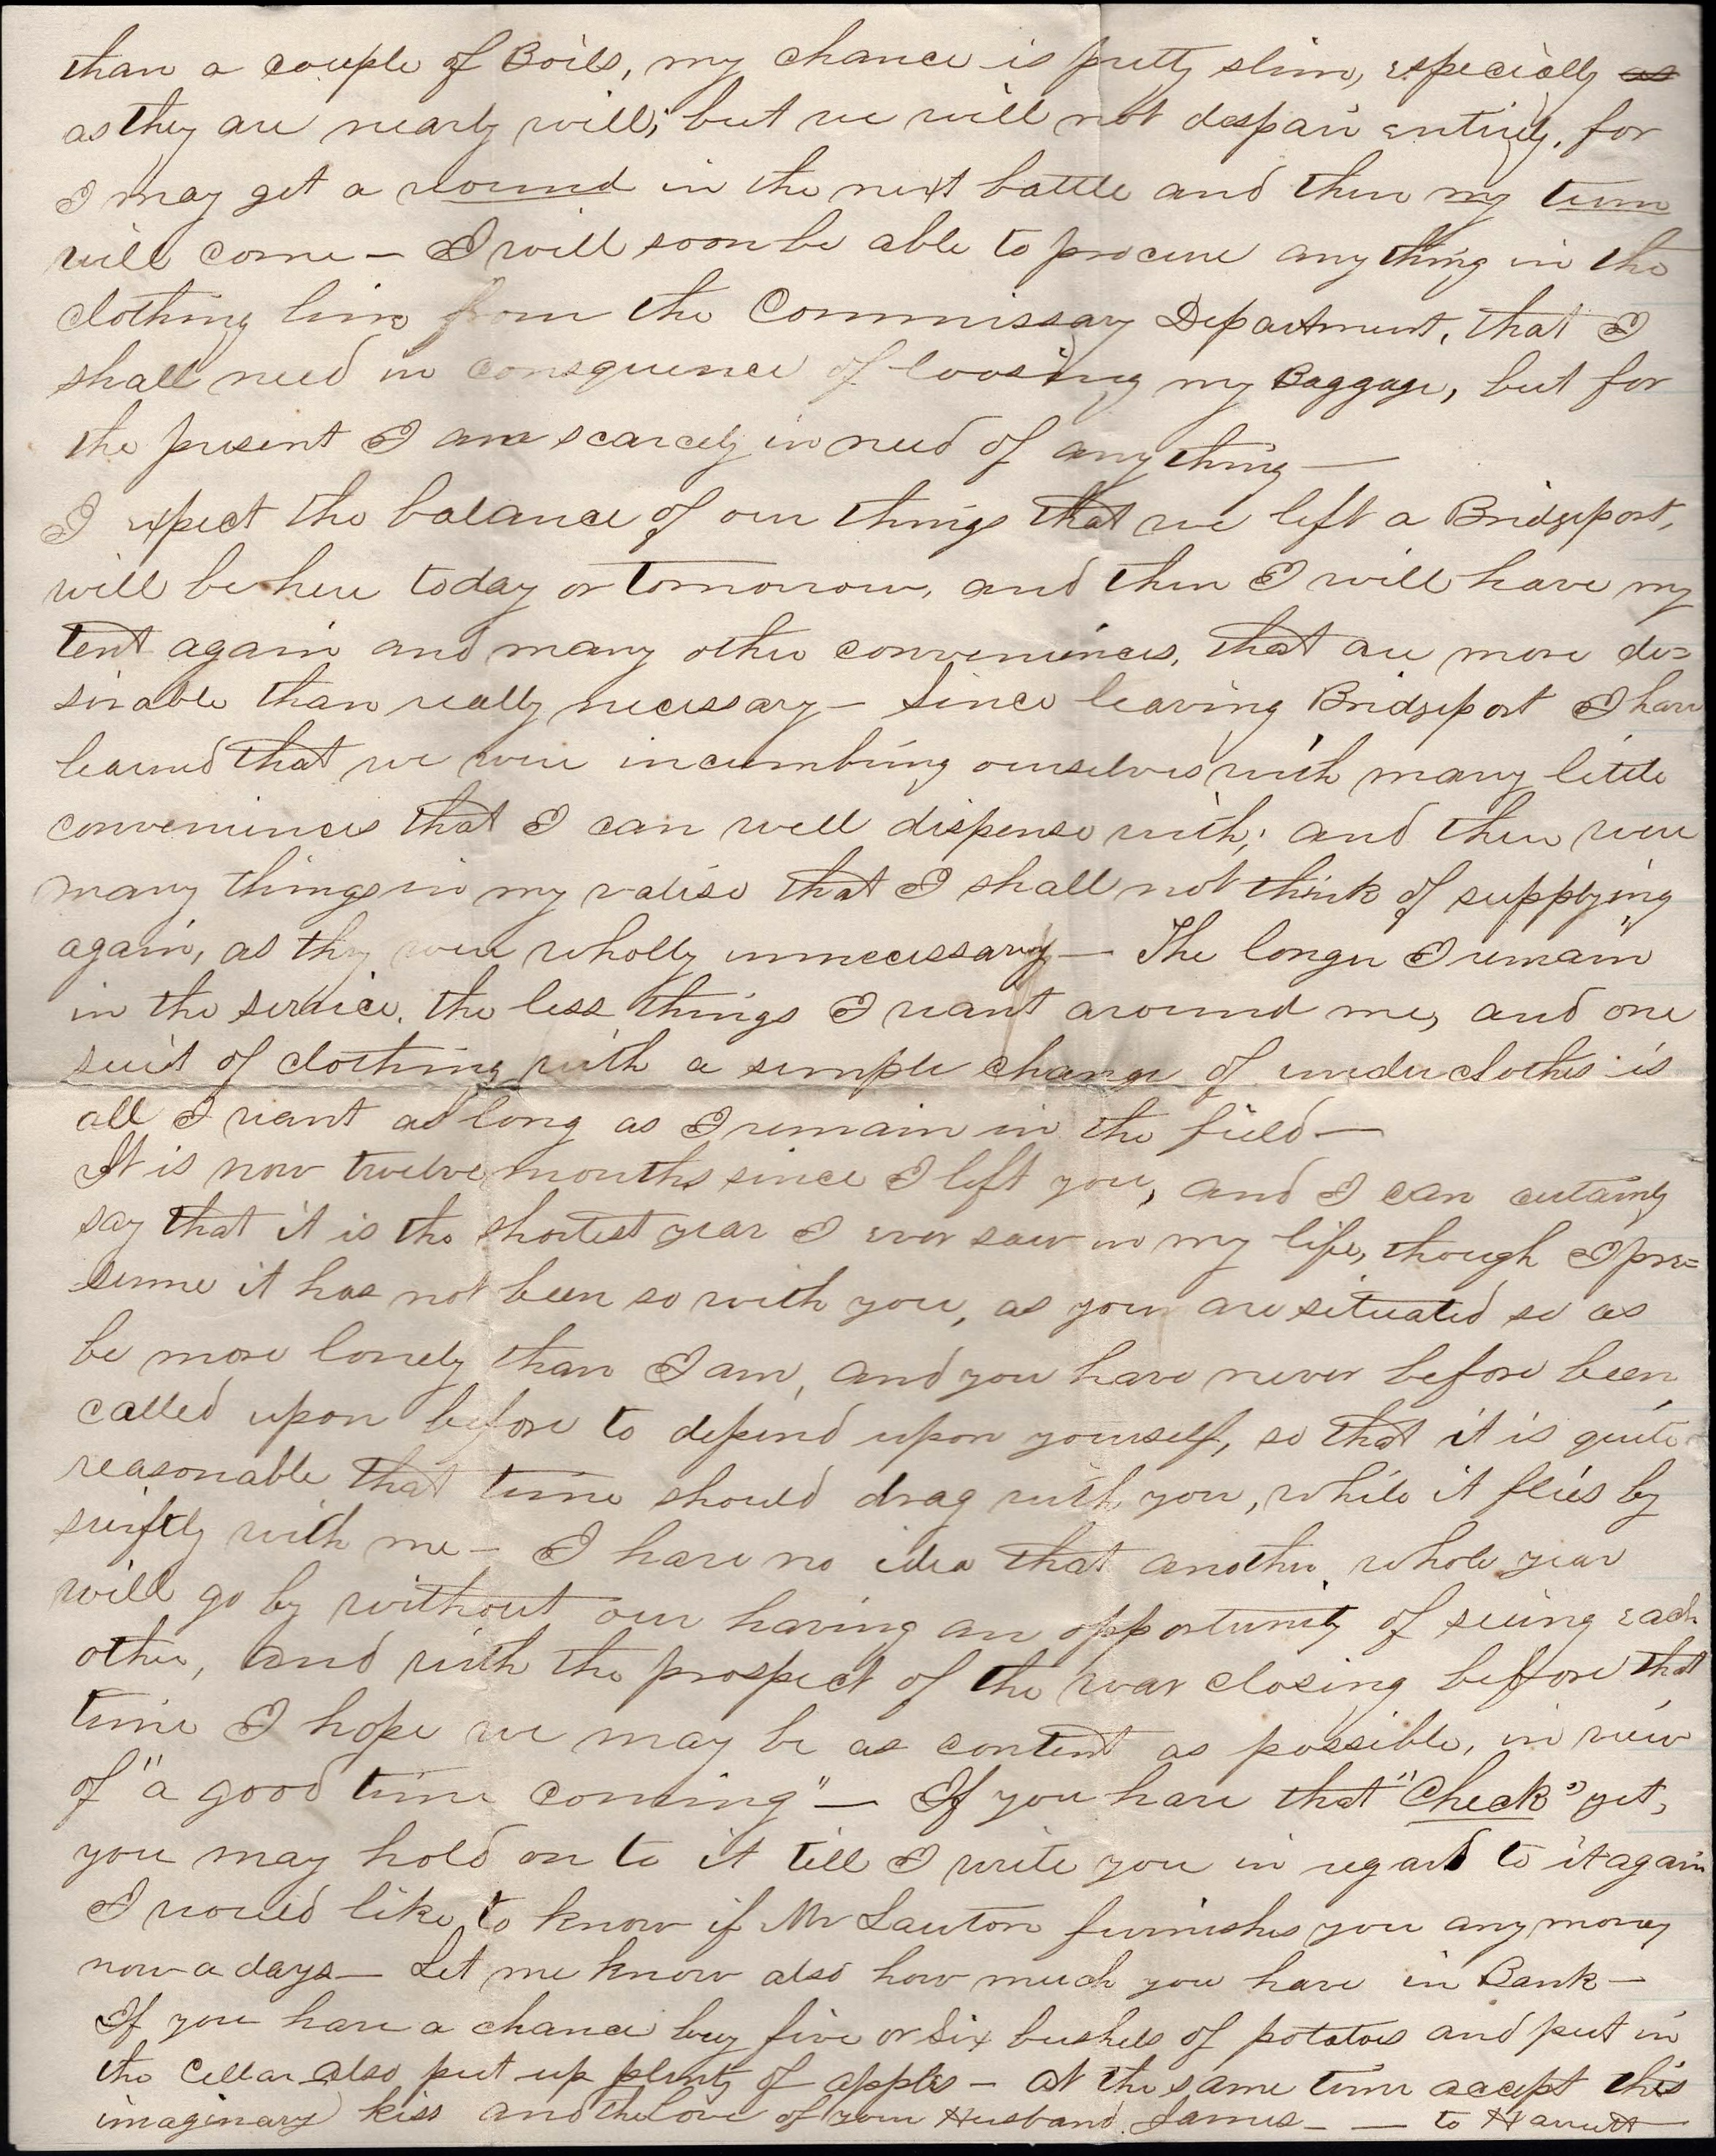 than a couple of Boils, my chance is pretty slim, especially as
as they are nearly well; but we will not despair entirely, for
I may get a wound in the next battle and then my turn
will come — I will soon be able to procure anything in the
clothing line from the Commissary Department, that I
shall need in consequence of loosing my Baggage, but for
the present I am scarcely in need of any thing —
I expect the balance of our things that we left a Bridgeport,
will be here today or tomorrow, and then I will have my
tent again and many other conveniences, that are more de=
sirable than really necessary — Since leaving Bridgeport I have
learned that we were incumbring ourselves with many little
conveniences that I can well dispense with; and there were
many things in my valise that I shall not think of supplying
again, as they were wholly unnecessary — The longer I remain
in the service, the less things I want around me, and one
suit of clothing with a simple change of underclothes is
all I want as long as I remain in the field —
It is now twelve months since I left you, and I can certainly
say that it is the shortest year I ever saw in my life, though I pre=
sume it has not been so with you, as your are situated so as
be more lonely than I am, and you have never before been
called upon before to depend upon yourself, so that it is quite
reasonable that time should drag with you, while it flies by
swiftly with me — I have no idea that another whole year
will go by without our having an opportunity of seeing each
other, and with the prospect of the war closing before that
time I hope we may be as content as possible, in view
of "a good time coming" — If you have that "Check" yet,
you may hold on to it till I write you in regard to it again
I would like to know if Mr Lawton furnishes you any money
now a days — Let me know also how much you have in Bank —
If you have a chance buy five or six bushels of potatoes and put in
the Cellar also put up plenty of apples — At the same time accept this
imaginary kiss and the love of your Husband James — — to Harriett